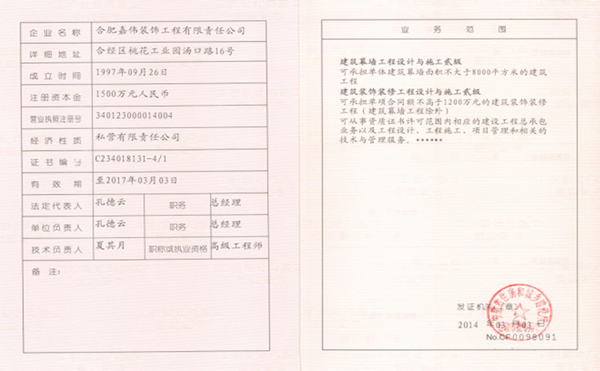 企业名称 合肥嘉伟装饰工程有限责任公司
详细地址 合经区桃花工业园汤口路16号
成立时间 1997年09月26日
注册资本金 1500万元人民币
营业执照注册号 340123000014004
经济性质 私营有限责任公司
证书编号 C234018131-4/1
有效期 至2017年03月03日
法定代表人 孔德云 职务 总经理
单位负责人 孔德云 职务 总经理
技术负责人 夏其月 职称或执业资格 高级工程师
备注：
业务范围
建筑幕墙工程设计与施工贰级
可承担单体建筑幕墙面积不大于8000平方米的建筑
工程
建筑装饰装修工程设计与施工贰级
可承担单项合同额不高于1200万元的建筑装饰装修
工程（建筑幕墙工程除外）
可从事资质证书许可范围内相应的建设工程总承包
业务以及工程设计、工程施工、项目管理和相关的
技术与管理服务。******
发证机关（章）
2014 年03月03日
No.CF0098091